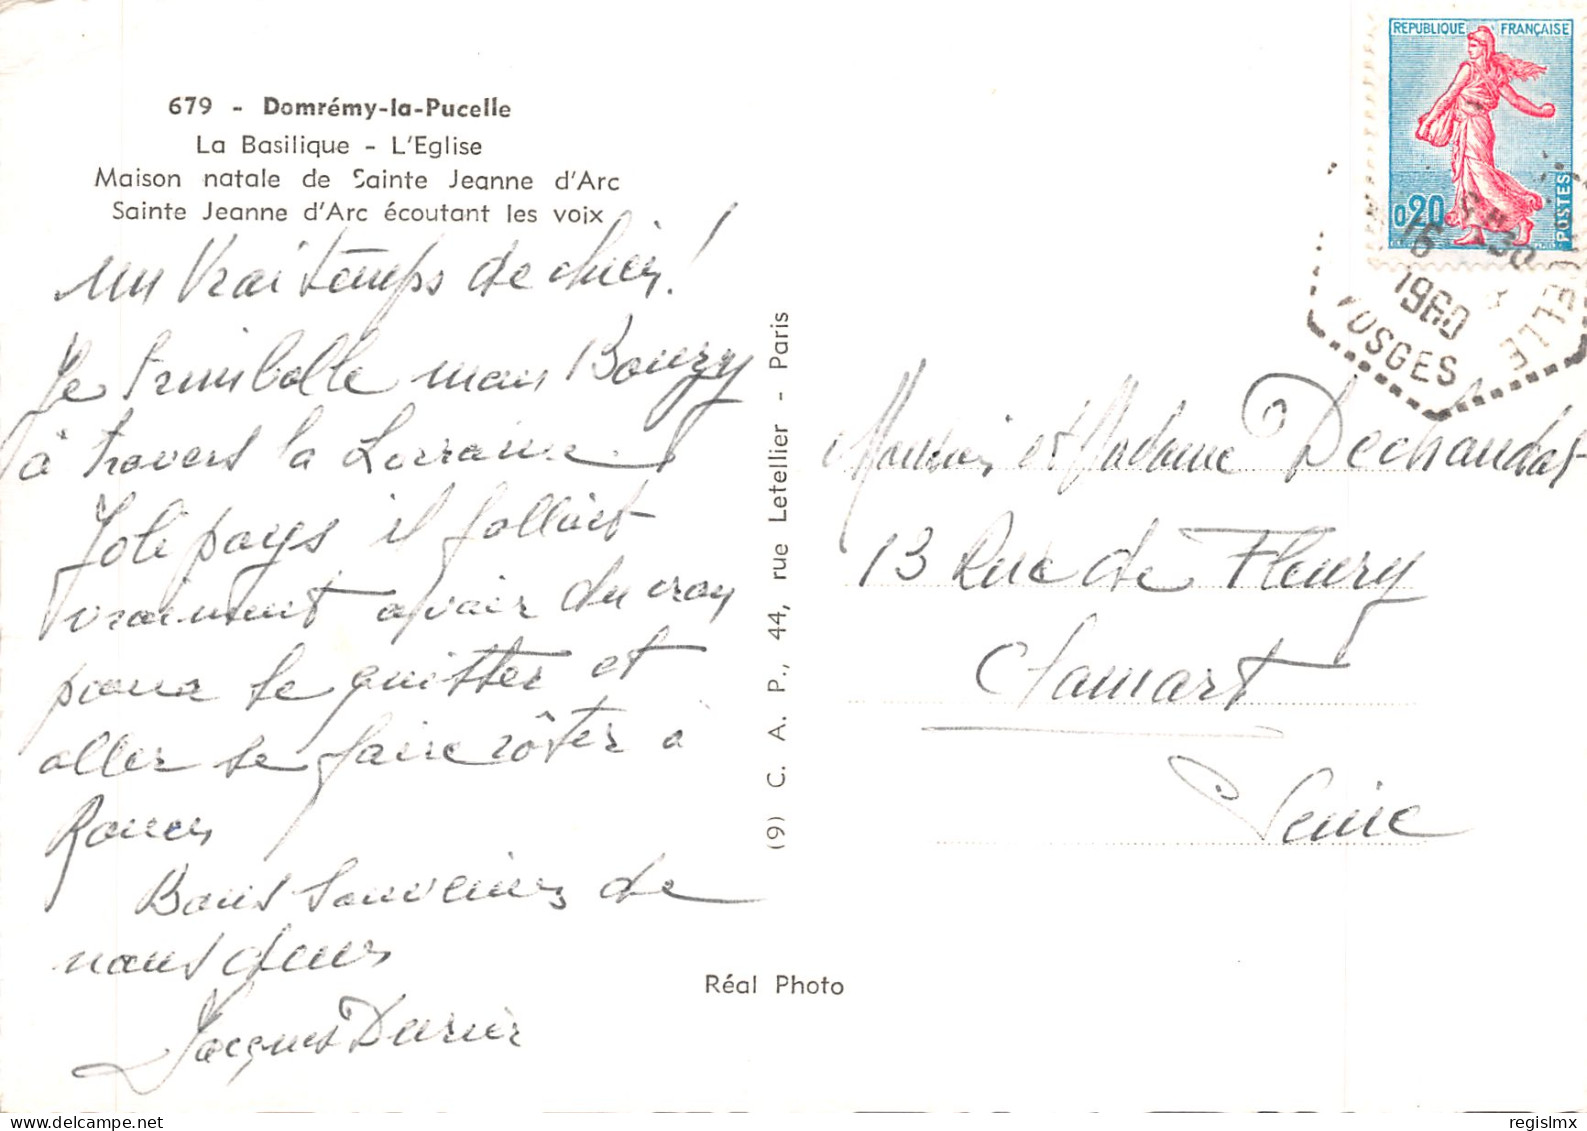 679 - Domrémy-la-Pucelle
La Basilique - L'Eglise
Maison natale de Sainte Jeanne d'Arc
Sainte Jeanne d'Arc écoutant les voix
Un vrai temps de chien!
Je trimballe mon Bouzy
à travers la Lorraine.
Joli pays il fallait
vraiment avoir du cran
pour le quitter et
aller se faire rôtir à
Rouen
Bons souvenirs de
nous deux
Jacques Durier
(9) C. A. P., 44, rue Letellier - Paris
Réal Photo
REPUBLIQUE FRANÇAISE
0,20
POSTES
16
1960
VOSGES
Monsieur et Madame Dechaudat
13 Rue de Fleury
Clamart
Seine
regislmx